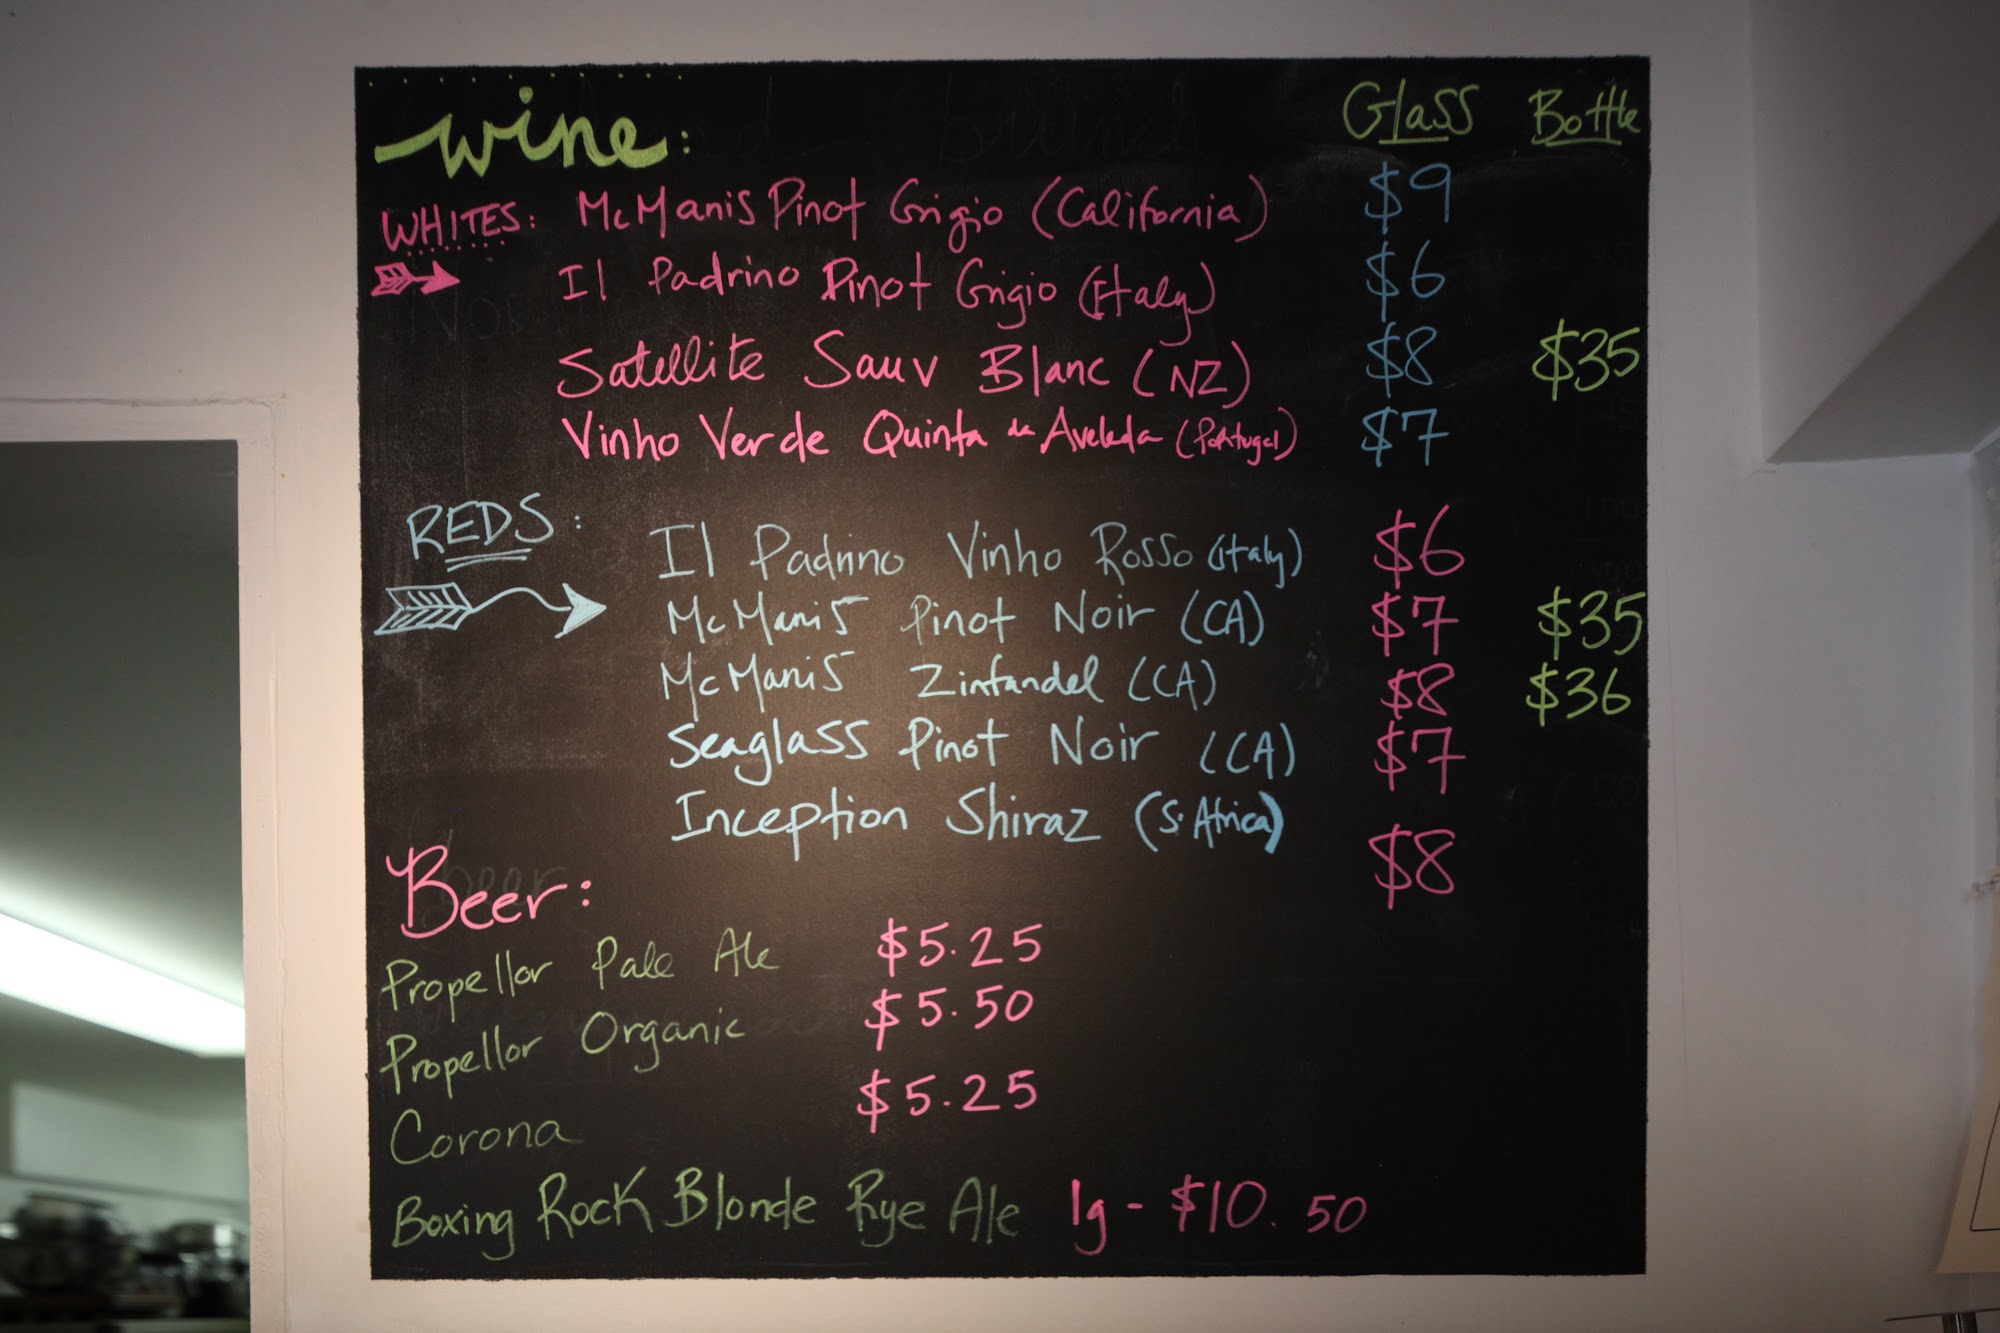 wine: Glass Bottle
WHITES: McManis Pinot Grigio (California) $9
Il Padrino Pinot Grigio (Italy) $6
Satellite Sauv Blanc (NZ) $8 $35
Vinho Verde Quinta da Aveleda (Portugal) $7
REDS: Il Padrino Vinho Rosso (Italy) $6
McManis Pinot Noir (CA) $7 $35
McManis Zinfandel (CA) $8 $36
Seaglass Pinot Noir (CA) $7
Inception Shiraz (S. Africa) $8
Beer:
Propellor Pale Ale $5.25
Propellor Organic $5.50
Corona $5.25
Boxing Rock Blonde Rye Ale lg - $10.50